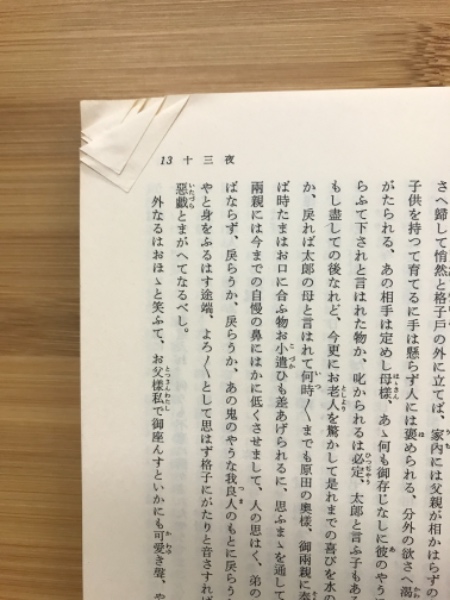 13 十三夜
さへ歸して悄然と格子戸の外に立てば、家內には父親が相かはらずの
子供を持つて育てるに手は懸らず人には褒められる、分外の欲さへ渴
がたられる、あの相手は定めし母樣、あゝ何も御存じなしに彼のやうに
らふて下されと言はれた物か、叱かられるは必定、太郎と言ふ子もある
もし盡しての後なれど、今更にお老人を驚かして是れまでの喜びを水の
か、戾れば太郎の母と言はれて何時〳〵までも原田の奧樣、御兩親に奏
ば時たまはお口に合ふ物お小遣ひも差あげられるに、思ふまゝを通して
兩親には今までの自慢の鼻にはかに低くさせまして、人の思はく、弟の
ばならず、戾らうか、戾らうか、あの鬼のやうな我良人のもとに戾らう
やと身をふるはす途端、よろ〳〵として思はず格子にがたりと音さすれば
惡戲とまがへてなるべし。
外なるはおほゝと笑ふて、お父樣私で御座んすといかにも可愛き聲、や